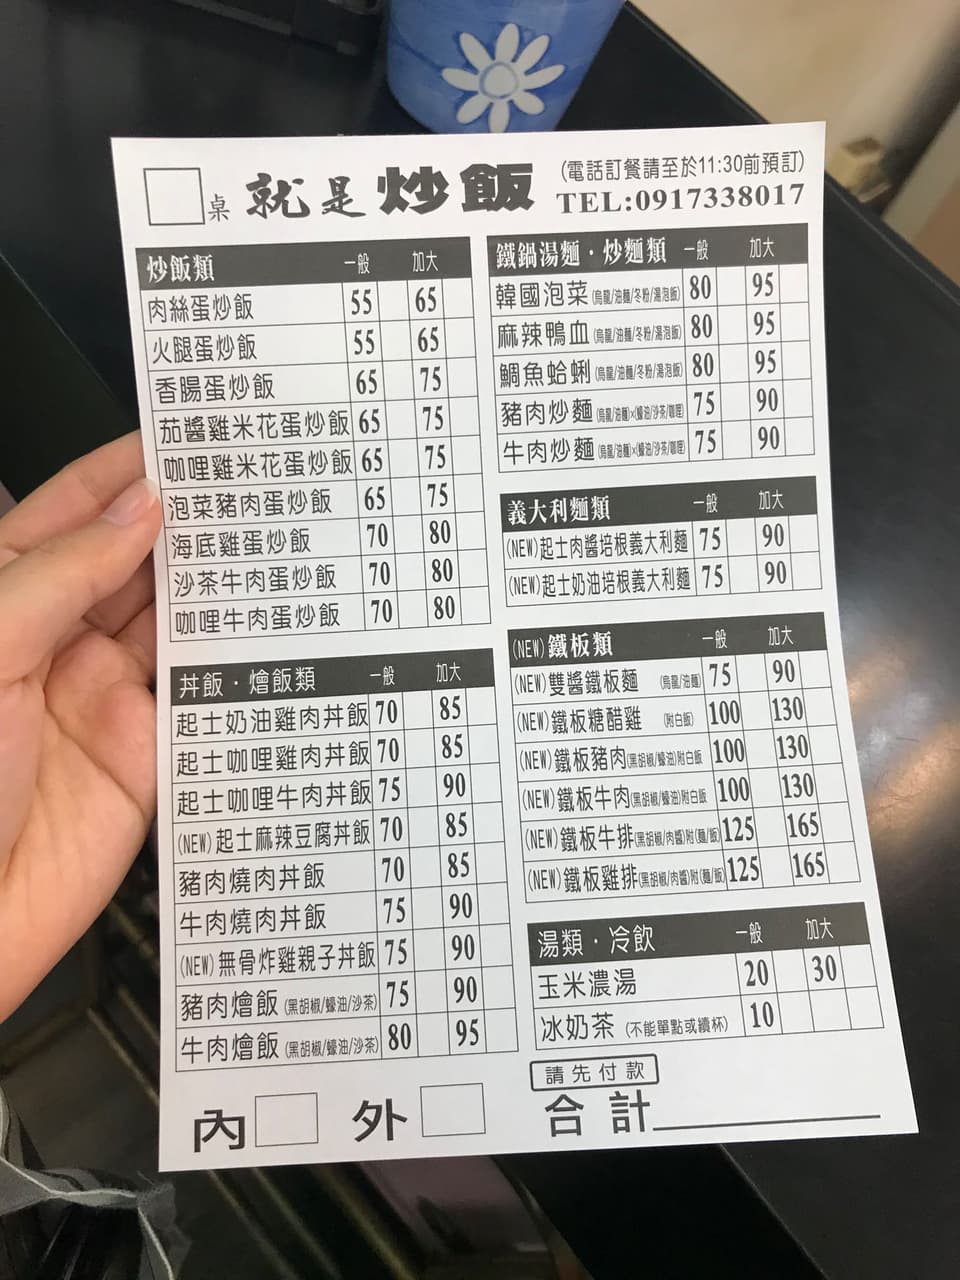 桌 就是炒飯 (電話訂餐請至於11:30前預訂)
TEL:0917338017
炒飯類 一般 加大
肉絲蛋炒飯 55 65
火腿蛋炒飯 55 65
香腸蛋炒飯 65 75
茄醬雞米花蛋炒飯 65 75
咖哩雞米花蛋炒飯 65 75
泡菜豬肉蛋炒飯 65 75
海底雞蛋炒飯 70 80
沙茶牛肉蛋炒飯 70 80
咖哩牛肉蛋炒飯 70 80
丼飯‧燴飯類 一般 加大
起士奶油雞肉丼飯 70 85
起士咖哩雞肉丼飯 70 85
起士咖哩牛肉丼飯 75 90
(NEW)起士麻辣豆腐丼飯 70 85
豬肉燒肉丼飯 70 85
牛肉燒肉丼飯 75 90
(NEW)無骨炸雞親子丼飯 75 90
豬肉燴飯(黑胡椒/蠔油/沙茶) 75 90
牛肉燴飯(黑胡椒/蠔油/沙茶) 80 95
鐵鍋湯麵‧炒麵類 一般 加大
韓國泡菜(烏龍/油麵/冬粉/湯泡飯) 80 95
麻辣鴨血(烏龍/油麵/冬粉/湯泡飯) 80 95
鯛魚蛤蜊(烏龍/油麵/冬粉/湯泡飯) 80 95
豬肉炒麵(烏龍/油麵)×(蠔油/沙茶/咖哩) 75 90
牛肉炒麵(烏龍/油麵)×(蠔油/沙茶/咖哩) 75 90
義大利麵類 一般 加大
(NEW)起士肉醬培根義大利麵 75 90
(NEW)起士奶油培根義大利麵 75 90
(NEW)鐵板類 一般 加大
(NEW)雙醬鐵板麵 (烏龍/油麵) 75 90
(NEW)鐵板糖醋雞 (附白飯) 100 130
(NEW)鐵板豬肉(黑胡椒/蠔油)附白飯 100 130
(NEW)鐵板牛肉(黑胡椒/蠔油)附白飯 100 130
(NEW)鐵板牛排(黑胡椒/肉醬)附(麵/飯) 125 165
(NEW)鐵板雞排(黑胡椒/肉醬)附(麵/飯) 125 165
湯類‧冷飲 一般 加大
玉米濃湯 20 30
冰奶茶 (不能單點或續杯) 10
請先付款
內 外 合計